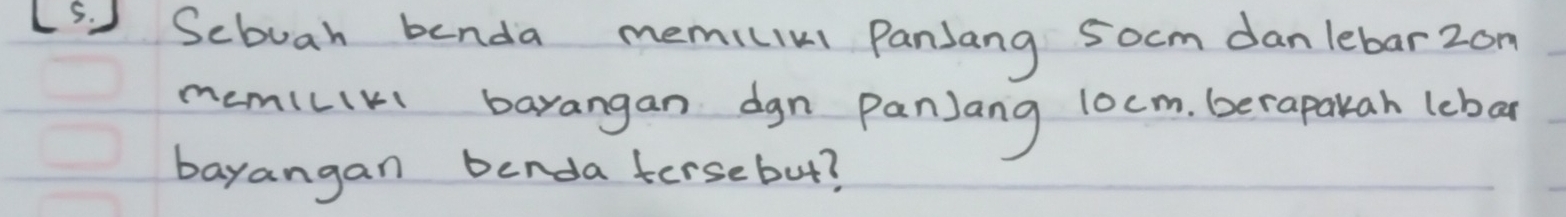 [5.] Sebuah benda memiliki Panjang 50cm dan lebar 20m
memiliki bayangan dgn panjang 10cm. berapakah lebar
bayangan benda tersebut?